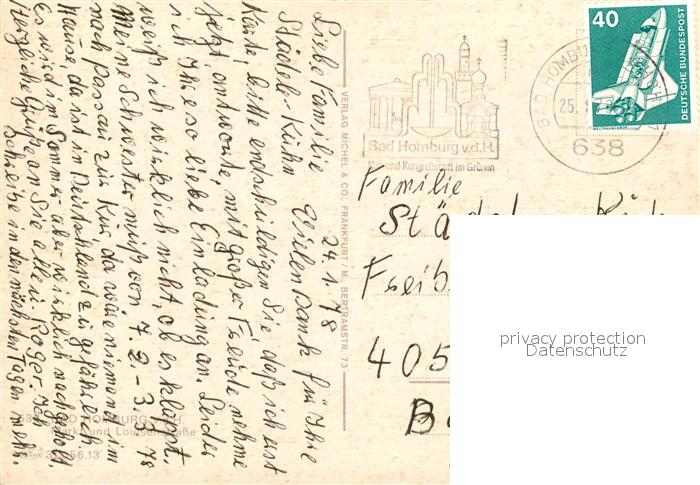 24.1.78
Liebe Familie
Städele-Kühn
Vielen Dank für Ihre
Karte, bitte entschuldigen Sie daß ich erst
jetzt antworte, mit großer Freude nehme
ich Ihre so liebe Einladung an. Leider
weiß ich wirklich nicht, ob es klappt.
Meine Schwester muß von 7.2. - 3.3. 78
nach Passau zur Kur, da wäre niemand im
Hause, da ist in Deutschland zu gefährlich
Es wird im Sommer aber wirklich nachgeholt.
Herzliche Grüße an Sie alle u. Roger. Ich
schreibe in den nächsten Tagen mehr.
VERLAG MICHEL & CO. FRANKFURT/M. BERTRAMSTR. 73
BAD HOMBURG
und Louisenstraße
Bad Homburg v.d.H.
Kur- und Kongreßstadt im Grünen
BAD HOMBU
25.
638
40
DEUTSCHE BUNDESPOST
WELTRAUMLABOR
Familie
Städ
Freib
405
privacy protection
Datenschutz